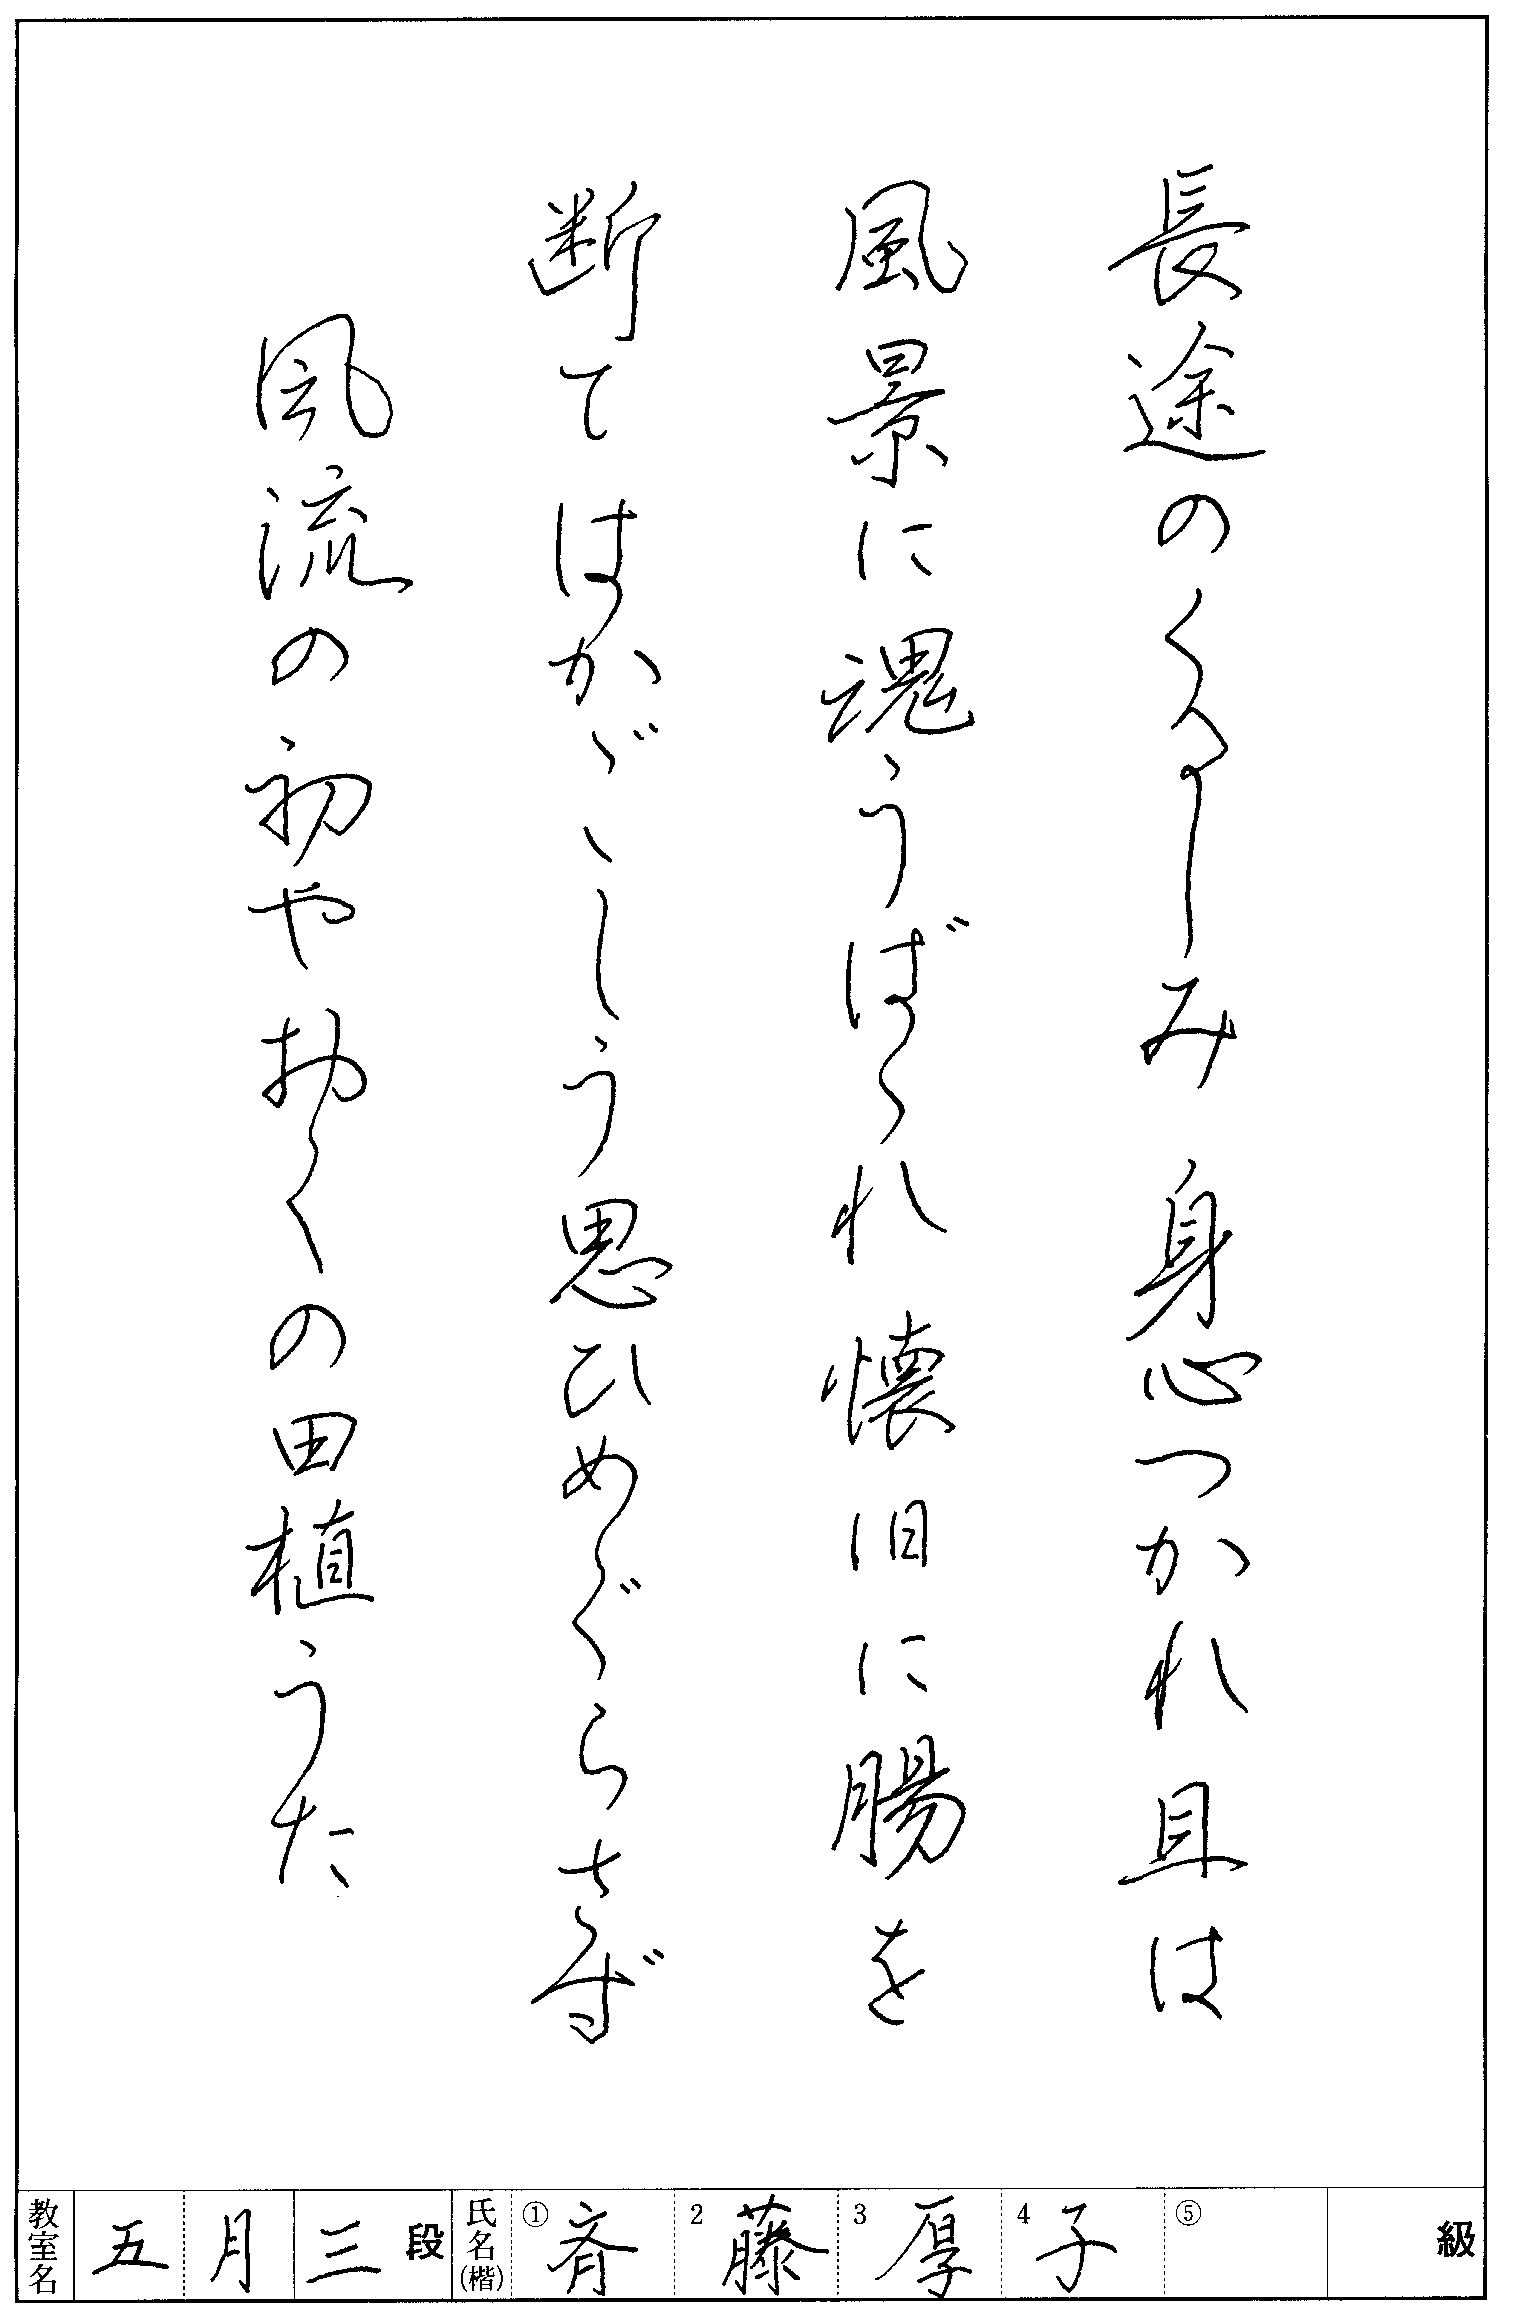 長途のくるしみ身心つかれ且は
風景に魂うばゝれ懐旧に腸を
断てはかゞゝしう思ひめぐらさず
風流の初やおくの田植うた
教室名 五月 三段 氏名(楷) ①斉 2藤 3厚 4子 ⑤ 級